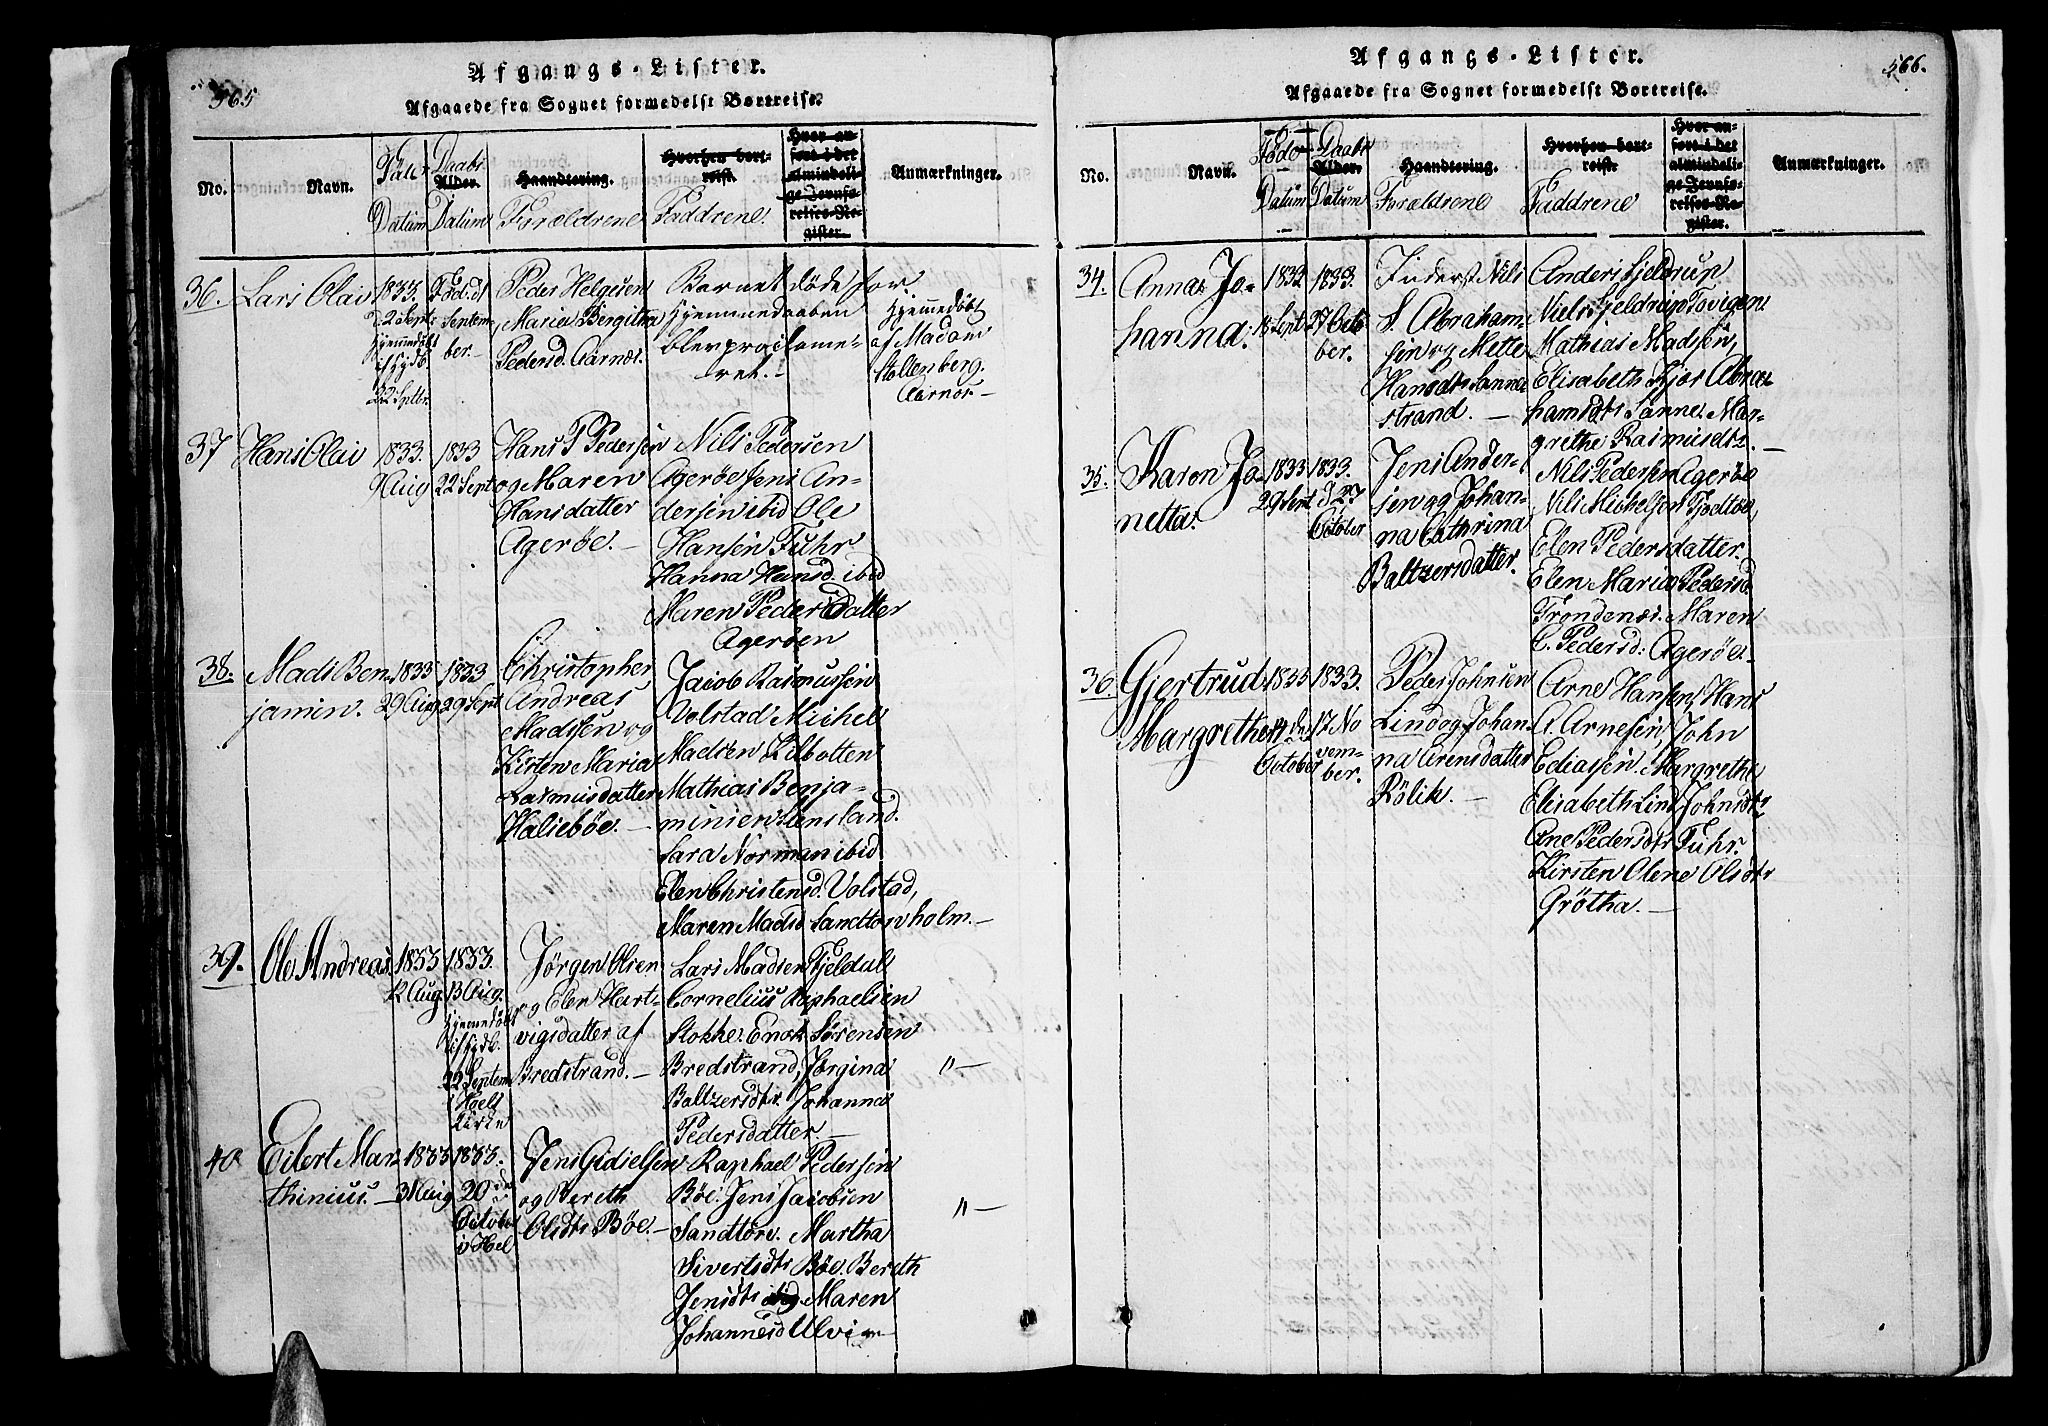 565
Afgangs-Lister.
Afgaaede fra Sognet formedelst Bortreise.
No.
Navn.
Føder
Datum
Daabs
Alder.
Datum
Haandtering.
Forældrene
Hvorhen bort-
reist.
Faddrene.
Hvor an-
ført i det
almindeli-
ge Jevnfø-
relses-Re-
gister.
Anmærkninger.
36.
Lars Olai
1833.
22 Septr
hjemmedøbt
22 Septbr.
Født
Septem
ber.-
Peder Helgesen
Maria Bergitha
Pedersd. Aarnæs.
Barnet døde før
Hjemmedaaben
blev proclame-
ret.-
Hjemmedøbt
af Madam
Stoltenberg.
Aarnæs.-
37
Hans Olai
1833.
9 Aug
1833
22 Sept
Hans P Pedersen
og Maren
Hansdatter
Agerøe.-
Nils Pedersen
Agerøe Jens An-
dersen ibid Ole
Hansen Fuhr
Hanna Hansd. ibid
Maren Pedersdatter
Agerøen
38.
Mads Ben-
jamin.
1833
29 Aug
1833
29 Sept
Christopher
Andreas
Madssen og
Kirsten Maria
Rasmusdatter
Haliebøe.-
Jacob Rasmussen
Volstad Michel
Madsen Kilbotten
Mathias Benja-
minsen Hensland.
Sara Norman ibid
Elen Christensd. Volstad,
Maren Madsd Sandtorvholm.-
39.
Ole Andreas
1833
12 Aug
1833.
13 Aug.
hjemmedøbt
22 Septem
i Hoels
Kirke
Jørgen Olsen
og Elen Hart-
vigsdatter af
Bredstrand.-
Lars Madsen Fjeldal
Cornelius Raphaelsen
Stokke. Enok Sørensen
Bredstrand, Jørgina
Baltzersdtr. Johanna
Pedersdatter.-
"-
40
Eilert Mar-
thinius.-
1833
31 Aug
1833.
20 de
October
i Hol
Jens Gidielsen
og Bereth
Olsdtr Bøe.-
Raphael Pedersen
Bøe. Jens Jacobsen
Sandtorv. Martha
Sivertsdtr Bøe. Bereth
Jensdtr og Maren
Johannesd Ulvi
"-
566.
Afgangs-Lister.
Afgaaede fra Sognet formedelst Bortreise.
No.
Navn.
Føde
Datum
Daabs
Alder.
Datum
Haandtering.
Forældrene
Hvorhen bort-
reist.
Faddrene
Hvor an-
ført i det
almindeli-
ge Jevnfø-
relses-Re-
gister.
Anmærkninger.
34.
Anna Jo-
hanna.
1833
18 Sept
1833.
27 Octo
ber.
Inderst Nils
S. Abraham-
sen og Mette
Hansdtr Sanna
strand.-
Anders Fjeldrup
Niels Fjeldrup Tovigen
Mathias Madsen,
Elisabeth Fjor Abra-
hamsdtr Sanne. Mar-
grethe Rasmusdtr.-
35.
Karen Jo-
netta.
1833
29 Sept
1833.
d 27
October
Jens Ander-
sen og Johan-
na Cathrina
Baltzersdatter.
Nils Pedersen Agerøe
Nils Michelsen Fjodtøe,
Elen Pedersdatter.
Elen Maria Pedersd.
Trondenæs. Maren
C. Pedersd: Agerøe.
36.
Gjertrud
Margrethe
1833
14 de
October
1833.
17 No
vem-
ber.
Peder Johnsen
Lind og Johan-
na Arensdatter
Rölik.-
Arne Hansen, Hans
A. Arnesen, John
Eliassen. Margrethe
Elisabeth Lind Johnsdtr
Ane Pedersdtr Fuhr.
Kirsten Olene Olsdtr
Grøtha.-